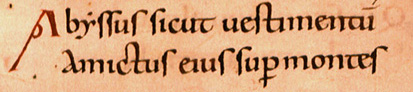 Abyssus sicut uestimentū
Amictus eius suꝑ montes